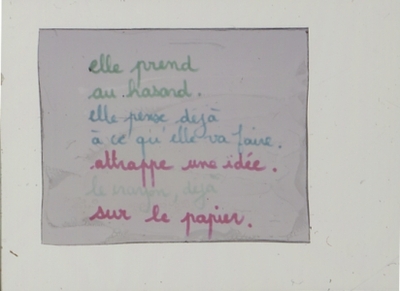 elle prend
au hasard.
elle pense dejà
à ce qu'elle va faire.
attrappe une idée.
le crayon, dejà
sur le papier.